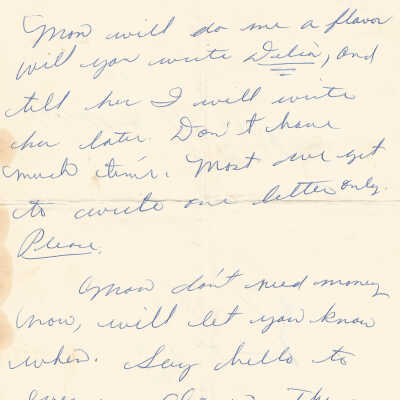 Mom will do me a flavor
will you write Delia, and
tell her I will write
her later. Don't have
much time. Most we get
to write one letter only.
Please.
Mom don't need money
now, will let you know
when. Say hello to